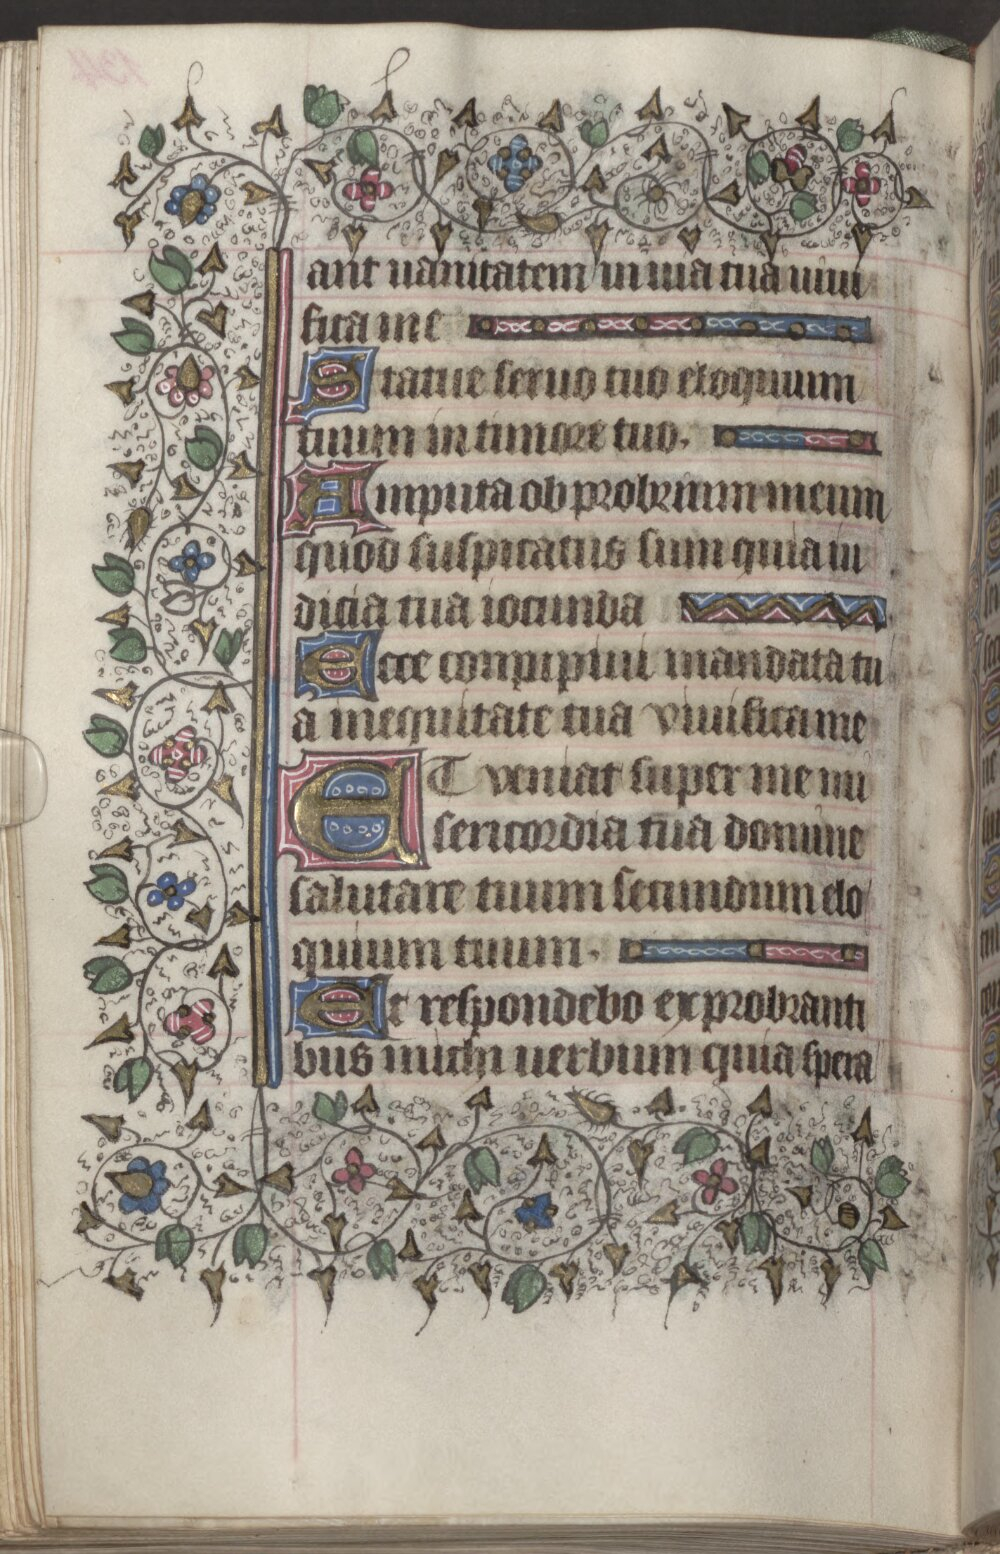 ant uanitatem in uia tua uiui
fica me
Statue seruo tuo eloquium
tuum in timore tuo.
Amputa obprobrium meum
quod suspicatus sum quia iu
dicia tua iocunda
Ecce concupiui mandata tu
a in equitate tua viuifica me
ET veniat super me mi
sericordia tua domine
salutare tuum secundum elo
quium tuum.
Et respondebo exprobranti
bus michi uerbum quia spera